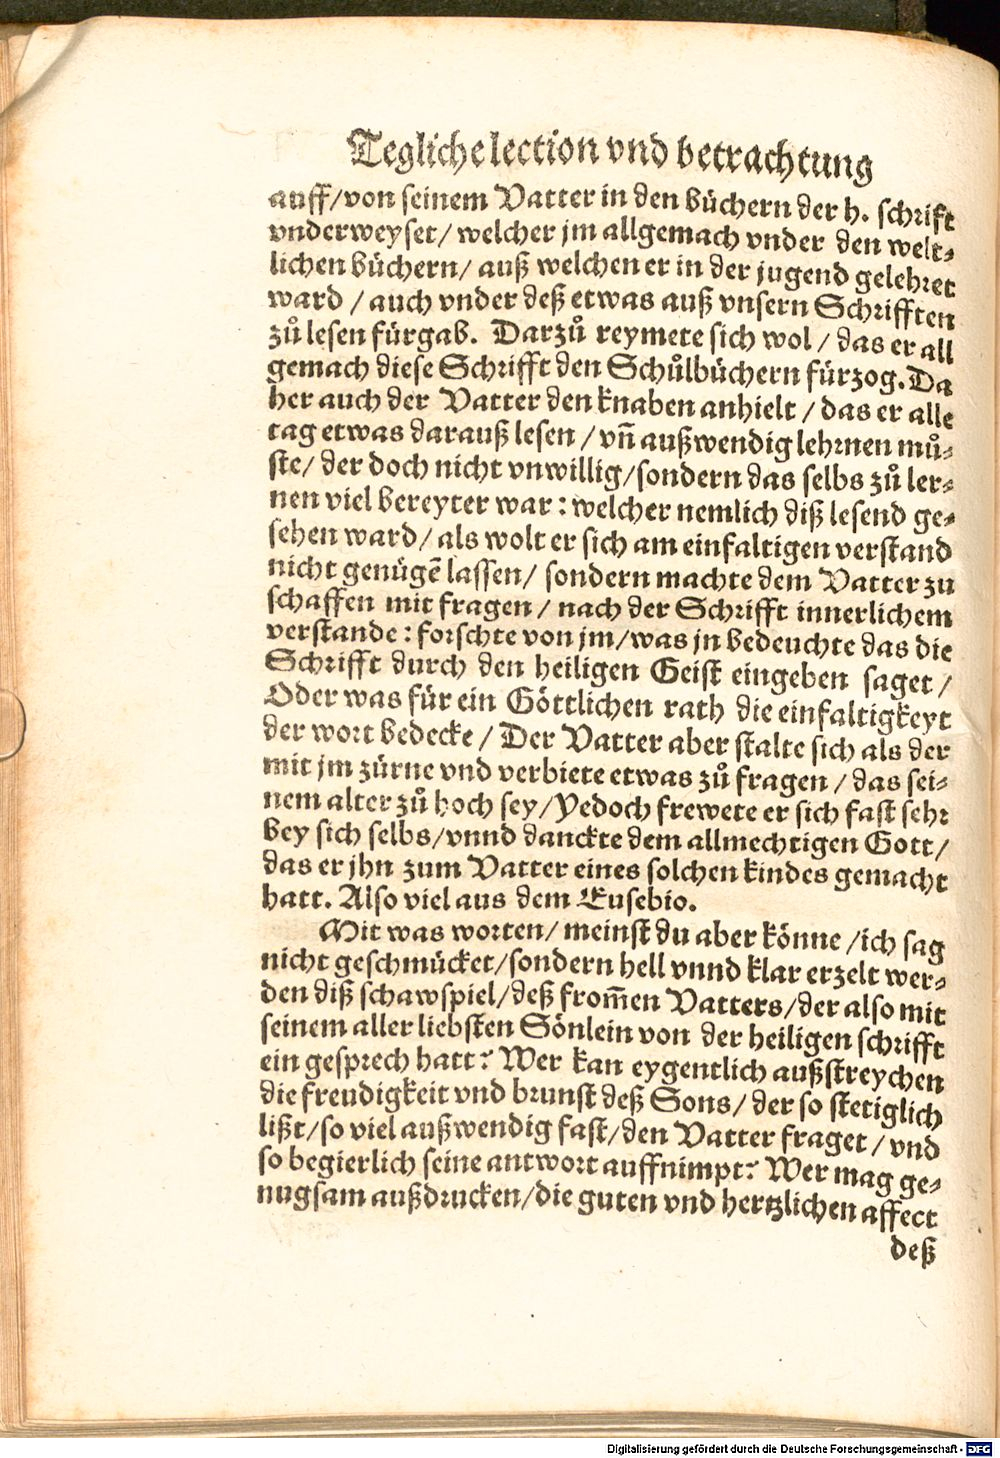 Tegliche lection vnd betrachtung
auff/von seinem Vatter in den büchern der h. schrift
vnderweyset/ welcher jm allgemach vnder den welt-
lichen büchern/ auß welchen er in der jugend gelehret
ward / auch vnder deß etwas auß vnsern Schrifften
zů lesen fürgab. Darzů reymete sich wol / das er all
gemach diese Schrifft den Schůlbüchern fürzog. Da
her auch der Vatter den knaben anhielt / das er alle
tag etwas darauß lesen / vñ außwendig lehrnen mů-
ste/ der doch nicht vnwillig/sondern das selbs zů ler-
nen viel bereyter war : welcher nemlich diß lesend ge-
sehen ward/ als wolt er sich am einfaltigen verstand
nicht genügẽ lassen/ sondern machte dem Vatter zu
schaffen mit fragen / nach der Schrifft innerlichem
verstande : forschte von jm/was jn bedeuchte das die
Schrifft durch den heiligen Geist eingeben saget /
Oder was für ein Göttlichen rath die einfaltigkeyt
der wort bedecke / Der Vatter aber stalte sich als der
mit jm zürne vnd verbiete etwas zů fragen / das sei-
nem alter zů hoch sey/ Yedoch frewete er sich fast sehr
bey sich selbs/vnnd danckte dem allmechtigen Gott/
das er jhn zum Vatter eines solchen kindes gemacht
hatt. Also viel aus dem Eusebio.
Mit was worten/ meinst du aber könne /ich sag
nicht geschmücket/sondern hell vnnd klar erzelt wer-
den diß schawspiel/deß from̃en Vatters/der also mit
seinem aller liebsten Sönlein von der heiligen schrifft
ein gesprech hatt? Wer kan eygentlich außstreychen
die freudigkeit vnd brunst deß Sons/ der so stetiglich
lißt/so viel außwendig fast/den Vatter fraget / vnd
so begierlich seine antwort auffnimpt? Wer mag ge-
nugsam außdrucken/die guten vnd hertzlichen affect
deß
Digitalisierung gefördert durch die Deutsche Forschungsgemeinschaft - DFG